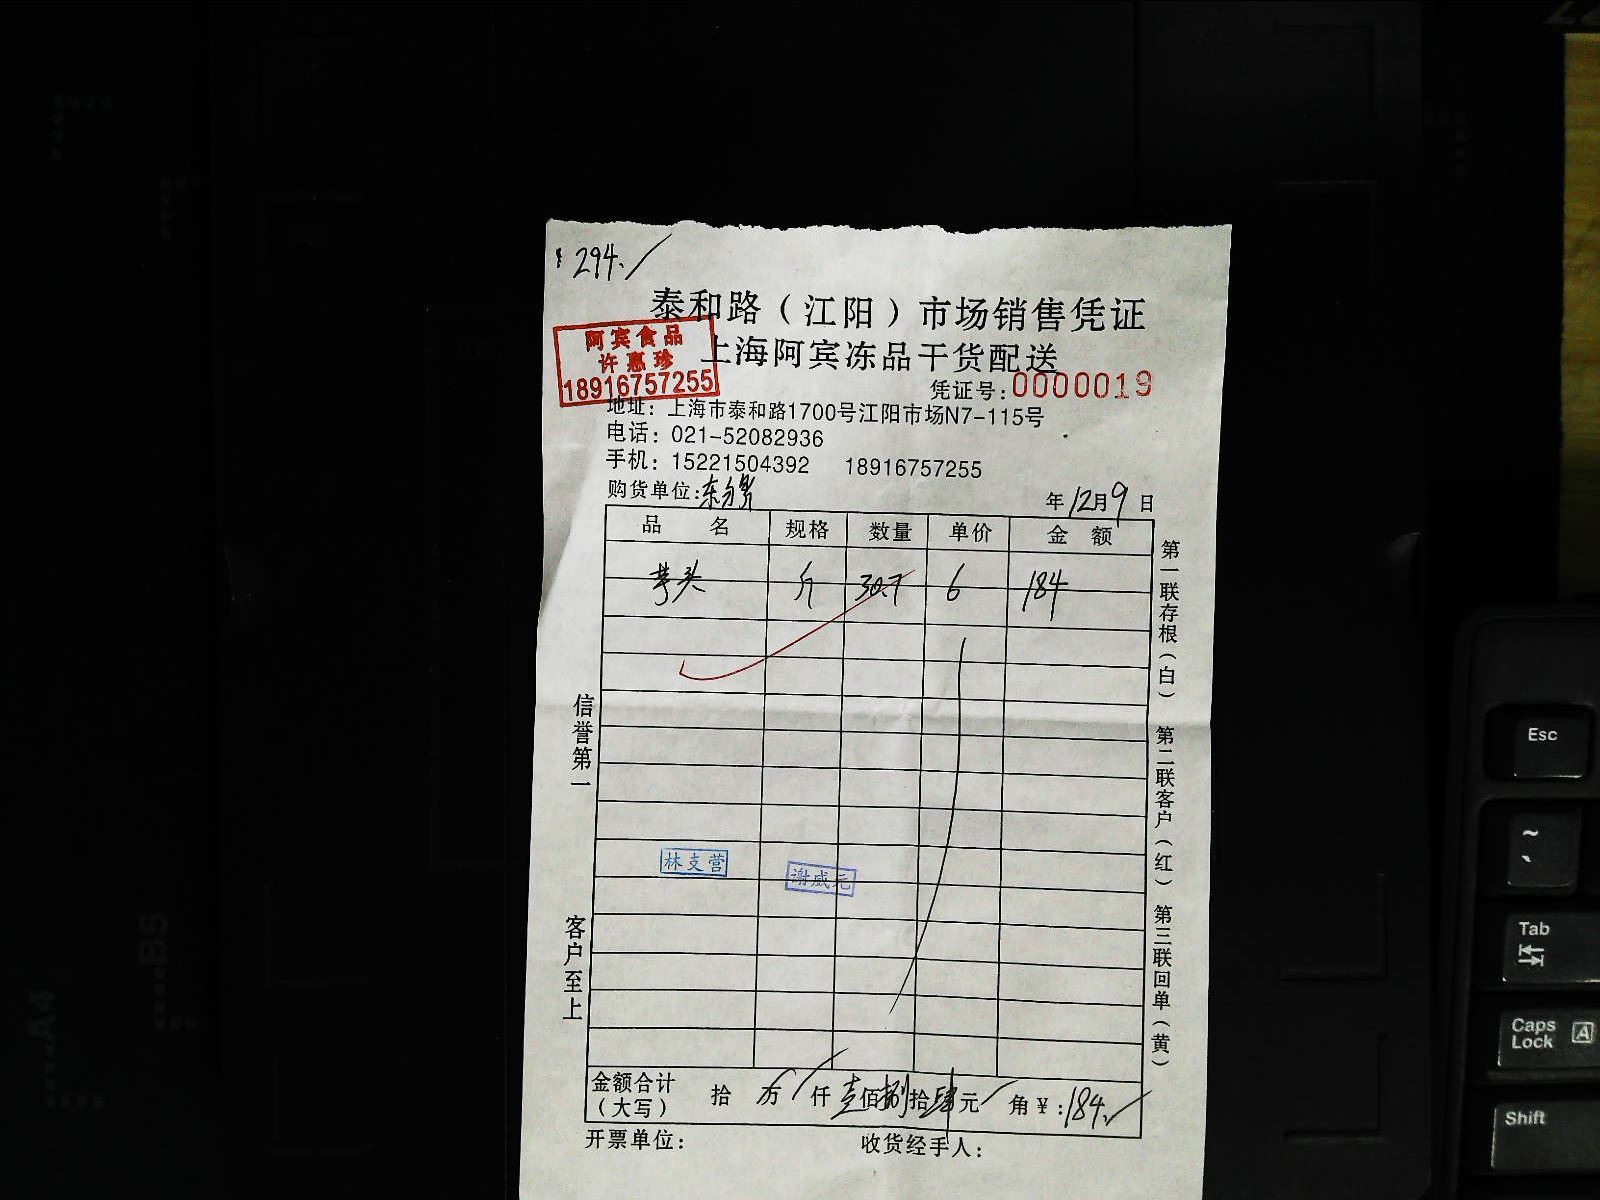 ¥294.
泰和路（江阳）市场销售凭证
上海阿宾冻品干货配送
阿宾食品
许惠珍
18916757255
凭证号:0000019
地址：上海市泰和路1700号江阳市场N7-115号
电话：021-52082936
手机：15221504392 18916757255
购货单位: 年12月9日
品名 规格 数量 单价 金额
芋头 斤 30.7 6 184
第一联存根（白） 第二联客户（红） 第三联回单（黄）
信誉第一
客户至上
林支营
谢威元
金额合计（大写） 拾 万 仟壹佰捌拾肆元 角¥:184.
开票单位： 收货经手人：
Esc
~
`
Tab
Caps Lock A
Shift
B5
A4